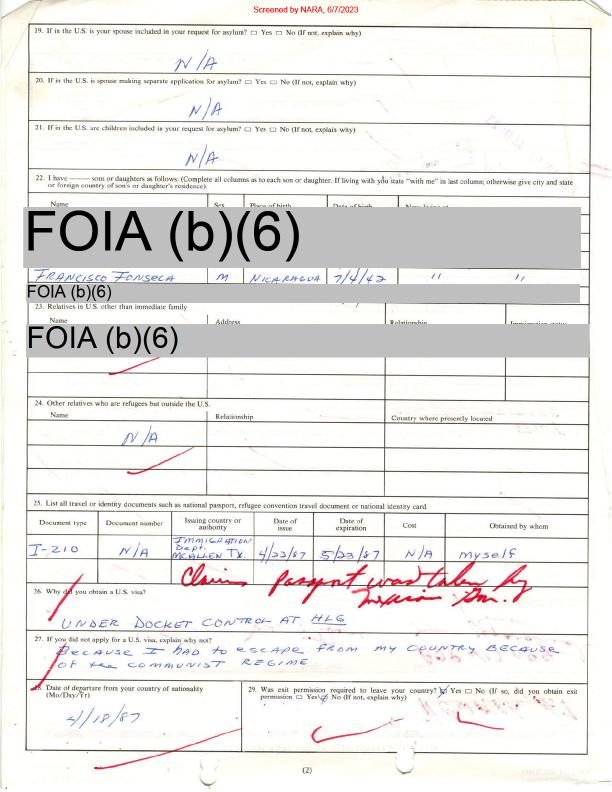 Screened by NARA, 6/7/2023
19. If in the U.S. is your spouse included in your request for asylum? □ Yes □ No (If not, explain why)
N/A
20. If in the U.S. is spouse making separate application for asylum? □ Yes □ No (If not, explain why)
N/A
21. If in the U.S. are children included in your request for asylum? □ Yes □ No (If not, explain why)
N/A
22. I have —— sons or daughters as follows: (Complete all columns as to each son or daughter. If living with you state "with me" in last column; otherwise give city and state
or foreign country of son's or daughter's residence).
Name Sex Place of birth Date of birth Now living at
FOIA (b)(6)
FRANCISCO FONSECA M NICARAGUA 7/4/42 " "
FOIA (b)(6)
23. Relatives in U.S. other than immediate family
Name Address Relationship Immigration status
FOIA (b)(6)
24. Other relatives who are refugees but outside the U.S.
Name Relationship Country where presently located
N/A
25. List all travel or identity documents such as national passport, refugee convention travel document or national identity card
Document type Document number Issuing country or authority Date of issue Date of expiration Cost Obtained by whom
I-210 N/A IMMIGRATION Dept. MCALLEN TX. 4/23/87 5/23/87 N/A myself
Claims passport was taken by
26. Why did you obtain a U.S. visa?
UNDER DOCKET CONTROL AT HLG
27. If you did not apply for a U.S. visa, explain why not?
Because I HAD to ESCAPE FROM MY COUNTRY BECAUSE
OF the COMMUNIST REGIME
28. Date of departure from your country of nationality
(Mo/Day/Yr)
4/18/87
29. Was exit permission required to leave your country? □ Yes □ No (If so, did you obtain exit
permission □ Yes □ No (If not, explain why)
(2)